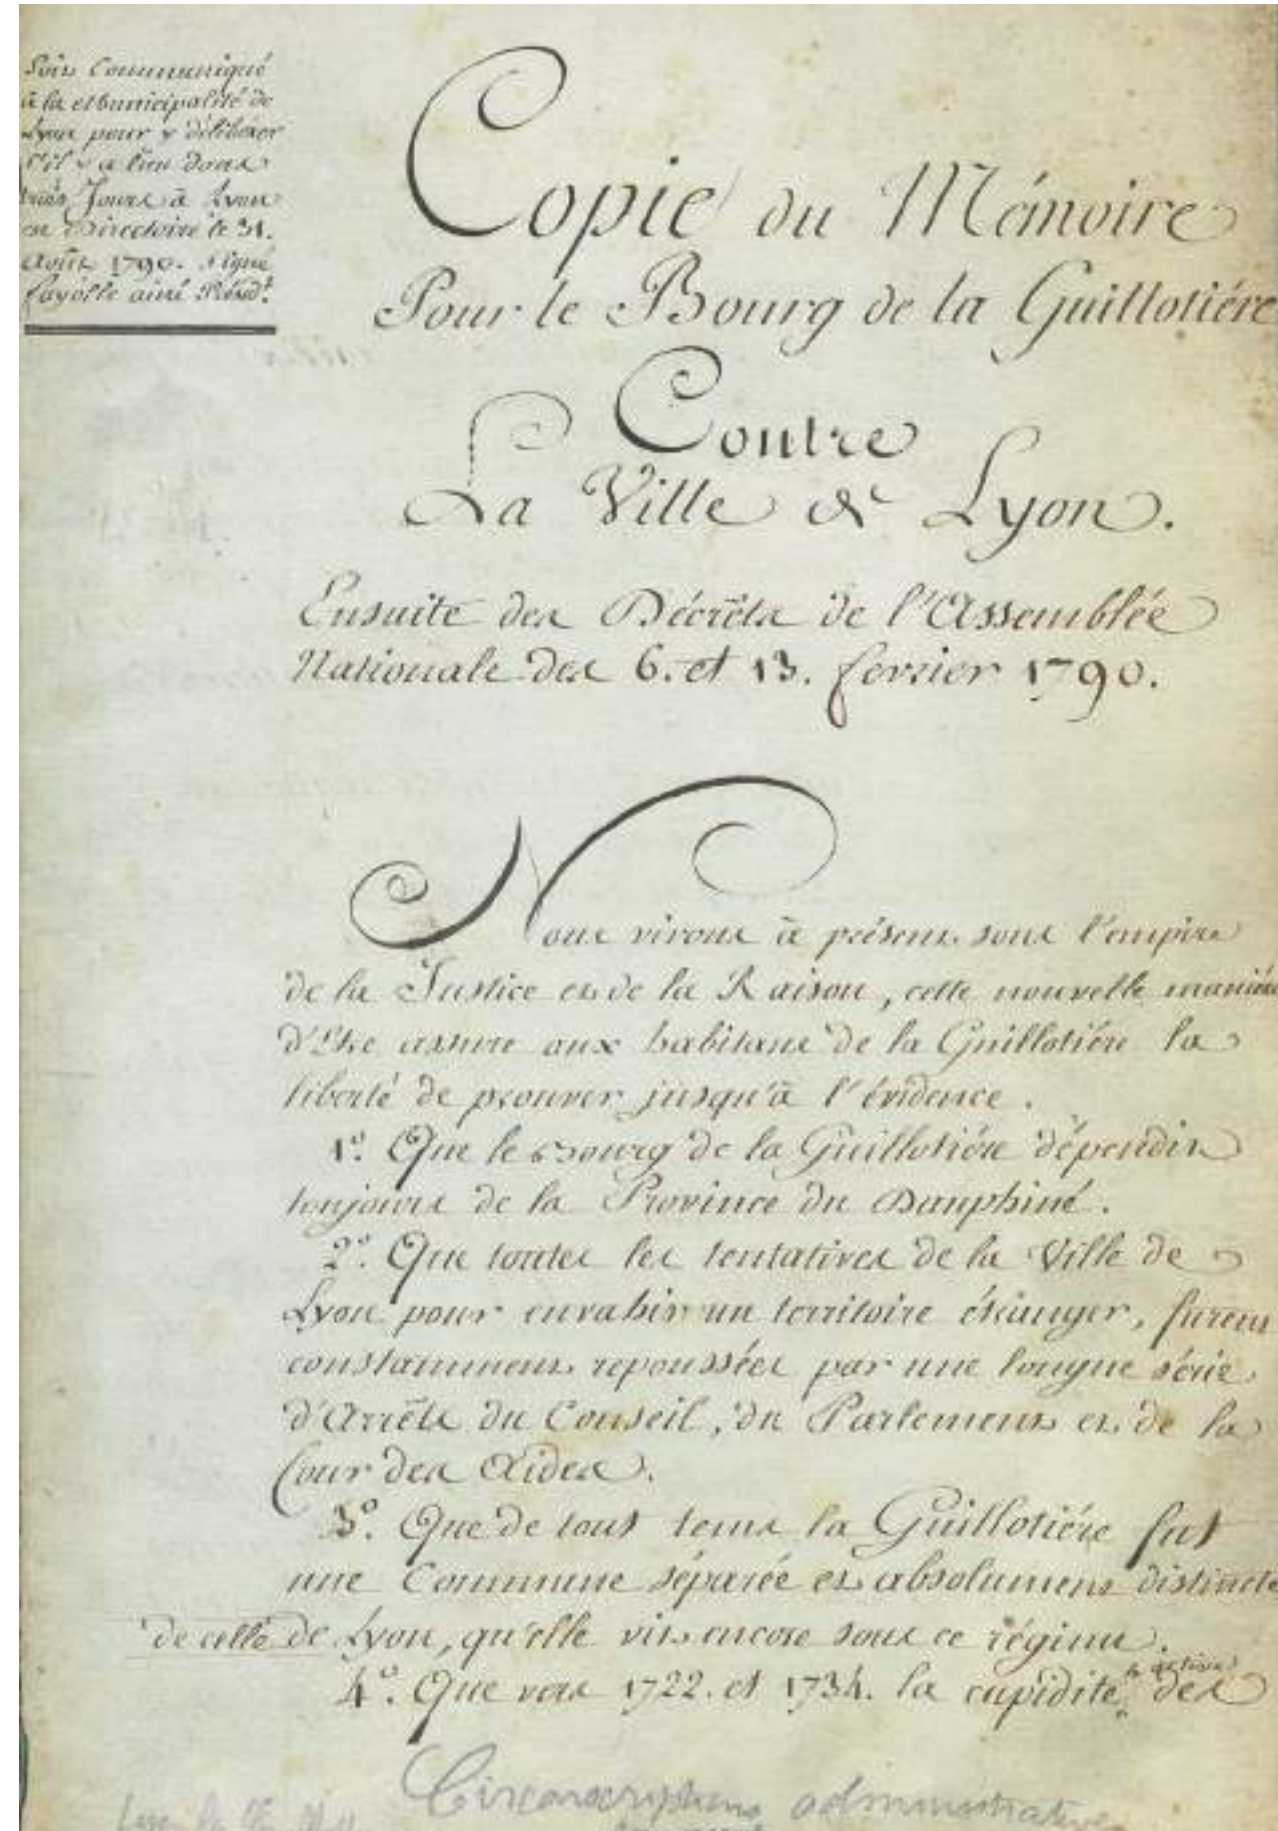 Soit Communiqué
à la Municipalité de
Lyon pour y délibérer
s'il y a lieu dans
trois Jours à Lyon
en Directoire le 31.
Août 1790. Signé
fayolle ainé Présid.t
Copie du Mémoire
Pour le Bourg de la Guillotiére
Contre
La Ville de Lyon.
Ensuite des Décrêts de l'Assemblée
Nationale des 6. et 13. fevrier 1790.
Nous vivons à présent sous l'empire
de la Justice et de la Raison, cette nouvelle maniére
d'Etre assure aux habitans de la Guillotiére la
liberté de prouver jusqu'à l'évidence.
1.º Que le Bourg de la Guillotiére dépendit
toujours de la Province du Dauphiné.
2.º Que toutes les tentatives de la Ville de
Lyon pour envahir un territoire étranger, furent
constamment repoussées par une longue série
d'Arrêts du Conseil, du Parlement et de la
Cour des Aides.
3.º Que de tous tems la Guillotiére fut
une Commune séparée et absolument distincte
de celle de Lyon, qu'elle vit encore sous ce régime.
4.º Que vers 1722. et 1734. la cupidité active des
Circonscriptions administratives